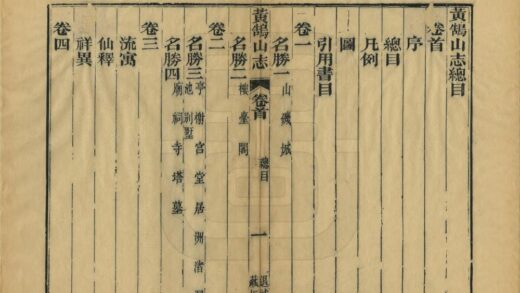 黃鵠山志總目
卷首
序
總目
凡例
圖
引用書目
卷一
名勝一 山 磯 城
黃鵠山志 卷首 總目 一
名勝二 樓 臺 閣
卷二
名勝三 亭 榭 宮 堂 居 洲 渚
池 別墅
名勝四 廟 祠 寺 塔 墓
卷三
流寓
仙釋
祥異
卷四